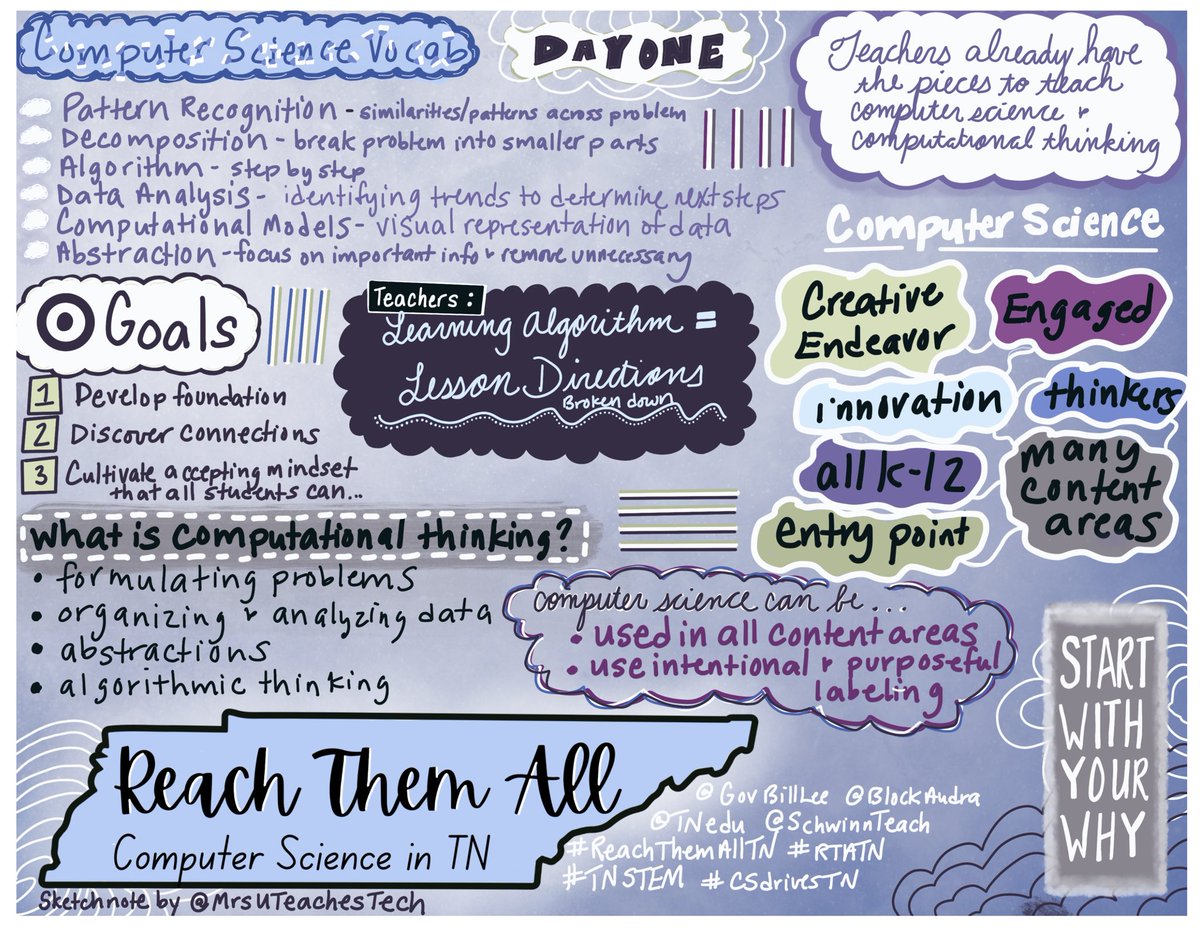 Computer Science Vocab
Pattern Recognition - similarities/patterns across problem
Decomposition - break problem into smaller parts
Algorithm - step by step
Data Analysis - identifying trends to determine next steps
Computational Models - visual representation of data
Abstraction - focus on important info & remove unnecessary
DAY ONE
Teachers already have
the pieces to teach
computer science &
computational thinking
Goals
1 Develop foundation
2 Discover Connections
3 Cultivate accepting mindset
that all students can...
Teachers:
Learning Algorithm =
Lesson Directions
Broken down
Computer Science
Creative
Endeavor
Engaged
innovation
thinkers
all K-12
many
content
areas
entry point
What is Computational thinking?
• formulating problems
• organizing & analyzing data
• abstractions
• algorithmic thinking
computer science can be...
• used in all content areas
• use intentional & purposeful
labeling
START
WITH
YOUR
WHY
Reach Them All
Computer Science in TN
@GovBillLee @BlockAudra
@TNedu @SchwinnTeach
#ReachThemAllTN #RTATN
#TNSTEM #CSdrivesTN
Sketchnote by @MrsUTeachesTech